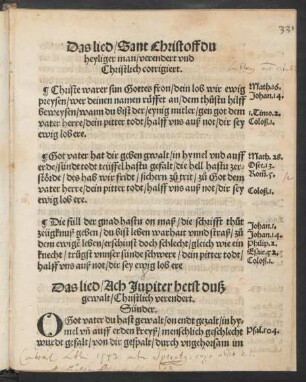 Das lied / Sant Christoff du
heyliger man / verendert vnd
Christlich corrigiert.
¶ Christe warer sun Gottes fron / dein lob wir ewig
preysen / wer deinen namen rüffet an / dem thůstu hilff
beweysen / wann du bist der eynig mitler / gen got dem
vater herre / dein pitter todt / halff vns auß not / dir sey
ewig lob ere.
Math. 16.
Johan. 14.
1. Timo. 2.
Colos. 1.
¶ Got vater hat dir geben gewalt / in hymel vnd auff
erde / sünd todt teüffel hastu gefalt / die hell hastu zer-
störde / do haß wir fridt / sichern zů trit / zů Got dem
vater herre / dein pitter todt / halff vns auß not / dir sey
ewig lob ere.
Math. 28.
Osee. 13.
Rom. 5.
Colos. 1.
¶ Die füll der gnad hastu on maß / die schrifft thůt
zeügknuß geben / du bist leben warhait vnnd straß / zů
dem ewigē leben / erscheinst doch schlecht / gleich wie ein
knecht / trůgst vnser sünde schwere / dein pitter todt /
halff vns auß not / dir sey ewig lob ere
Johan. 1.
Johan. 14.
Philip. 2.
Colos. 1.
Das lied / Ach Jupiter hetst duß
gewalt / Christlich verendert.
Sünder.
O Got vater du hast gewalt / on endt gezalt / in hy-
mel vñ auff erden kreyß / menschlich geschlecht
wurdt gesalt / von dir gespalt / durch vngehorsam im
Psal. 104.